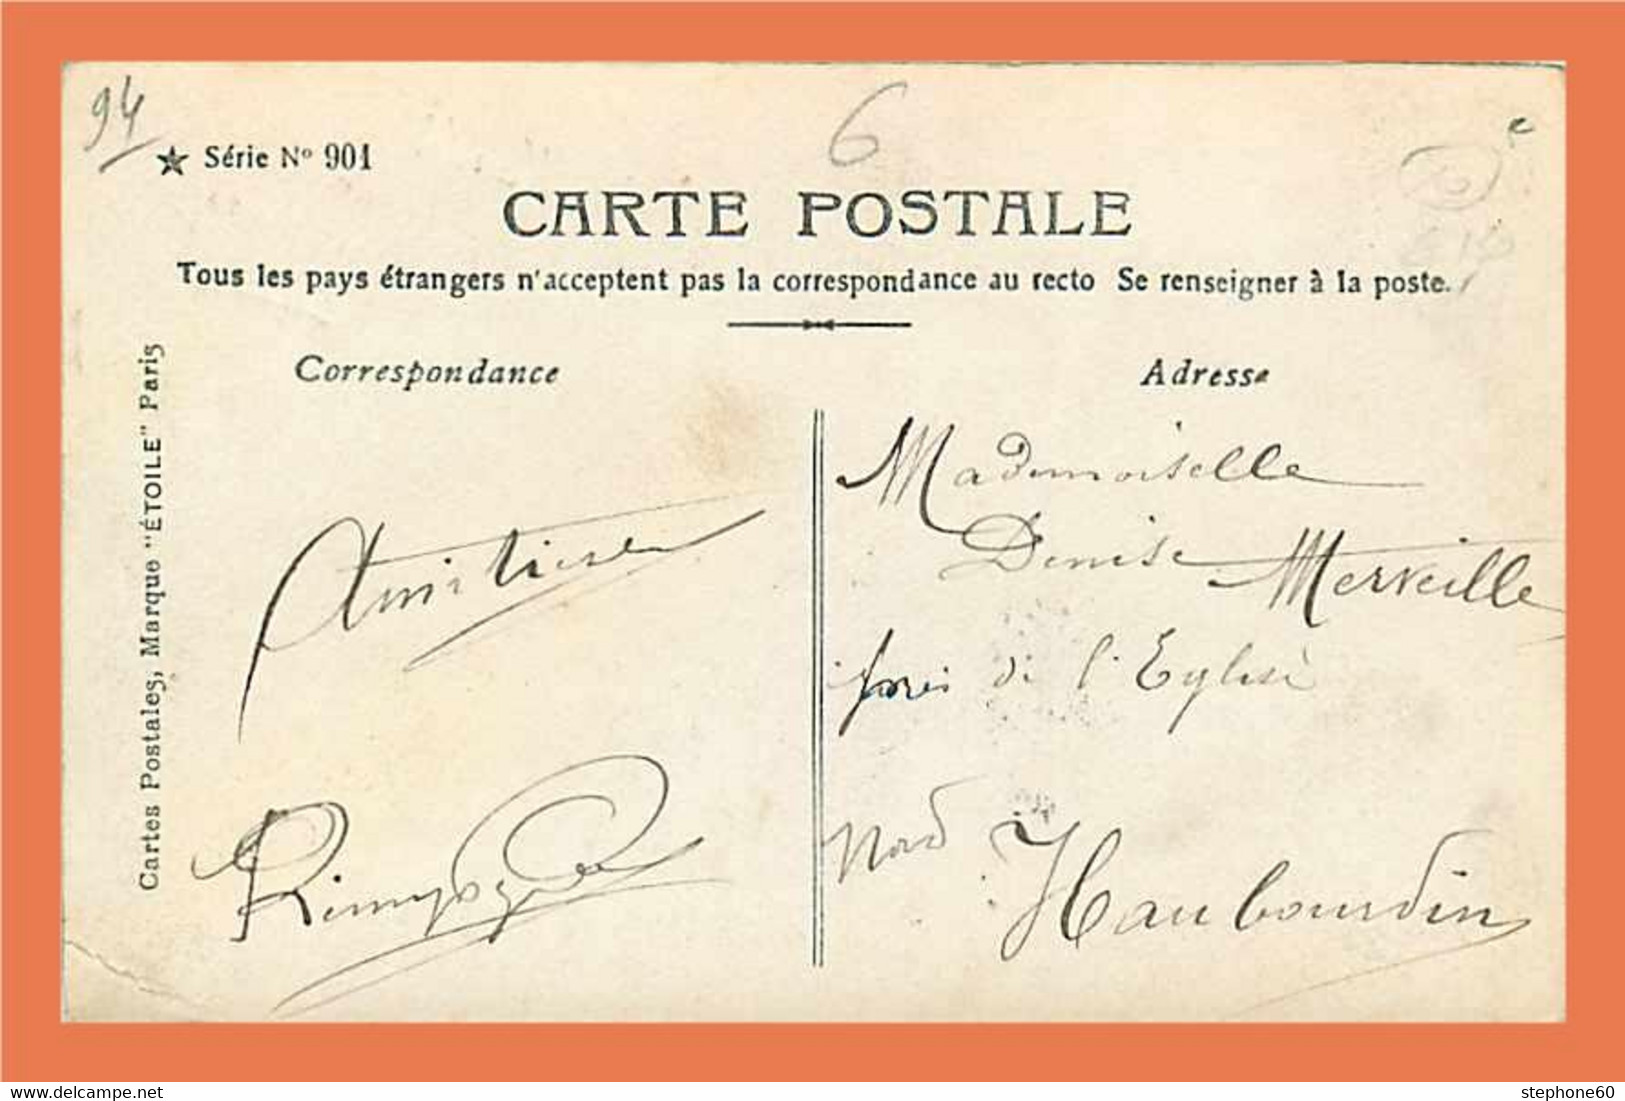 94
6
★ Série Nº 901
CARTE POSTALE
Tous les pays étrangers n'acceptent pas la correspondance au recto Se renseigner à la poste.
Correspondance
Adresse
Cartes Postales, Marque "ÉTOILE" Paris
Mademoiselle
Denise Merveille
près de l'Eglise
Nord Haubourdin
https://www.delcampe.net
stephone60